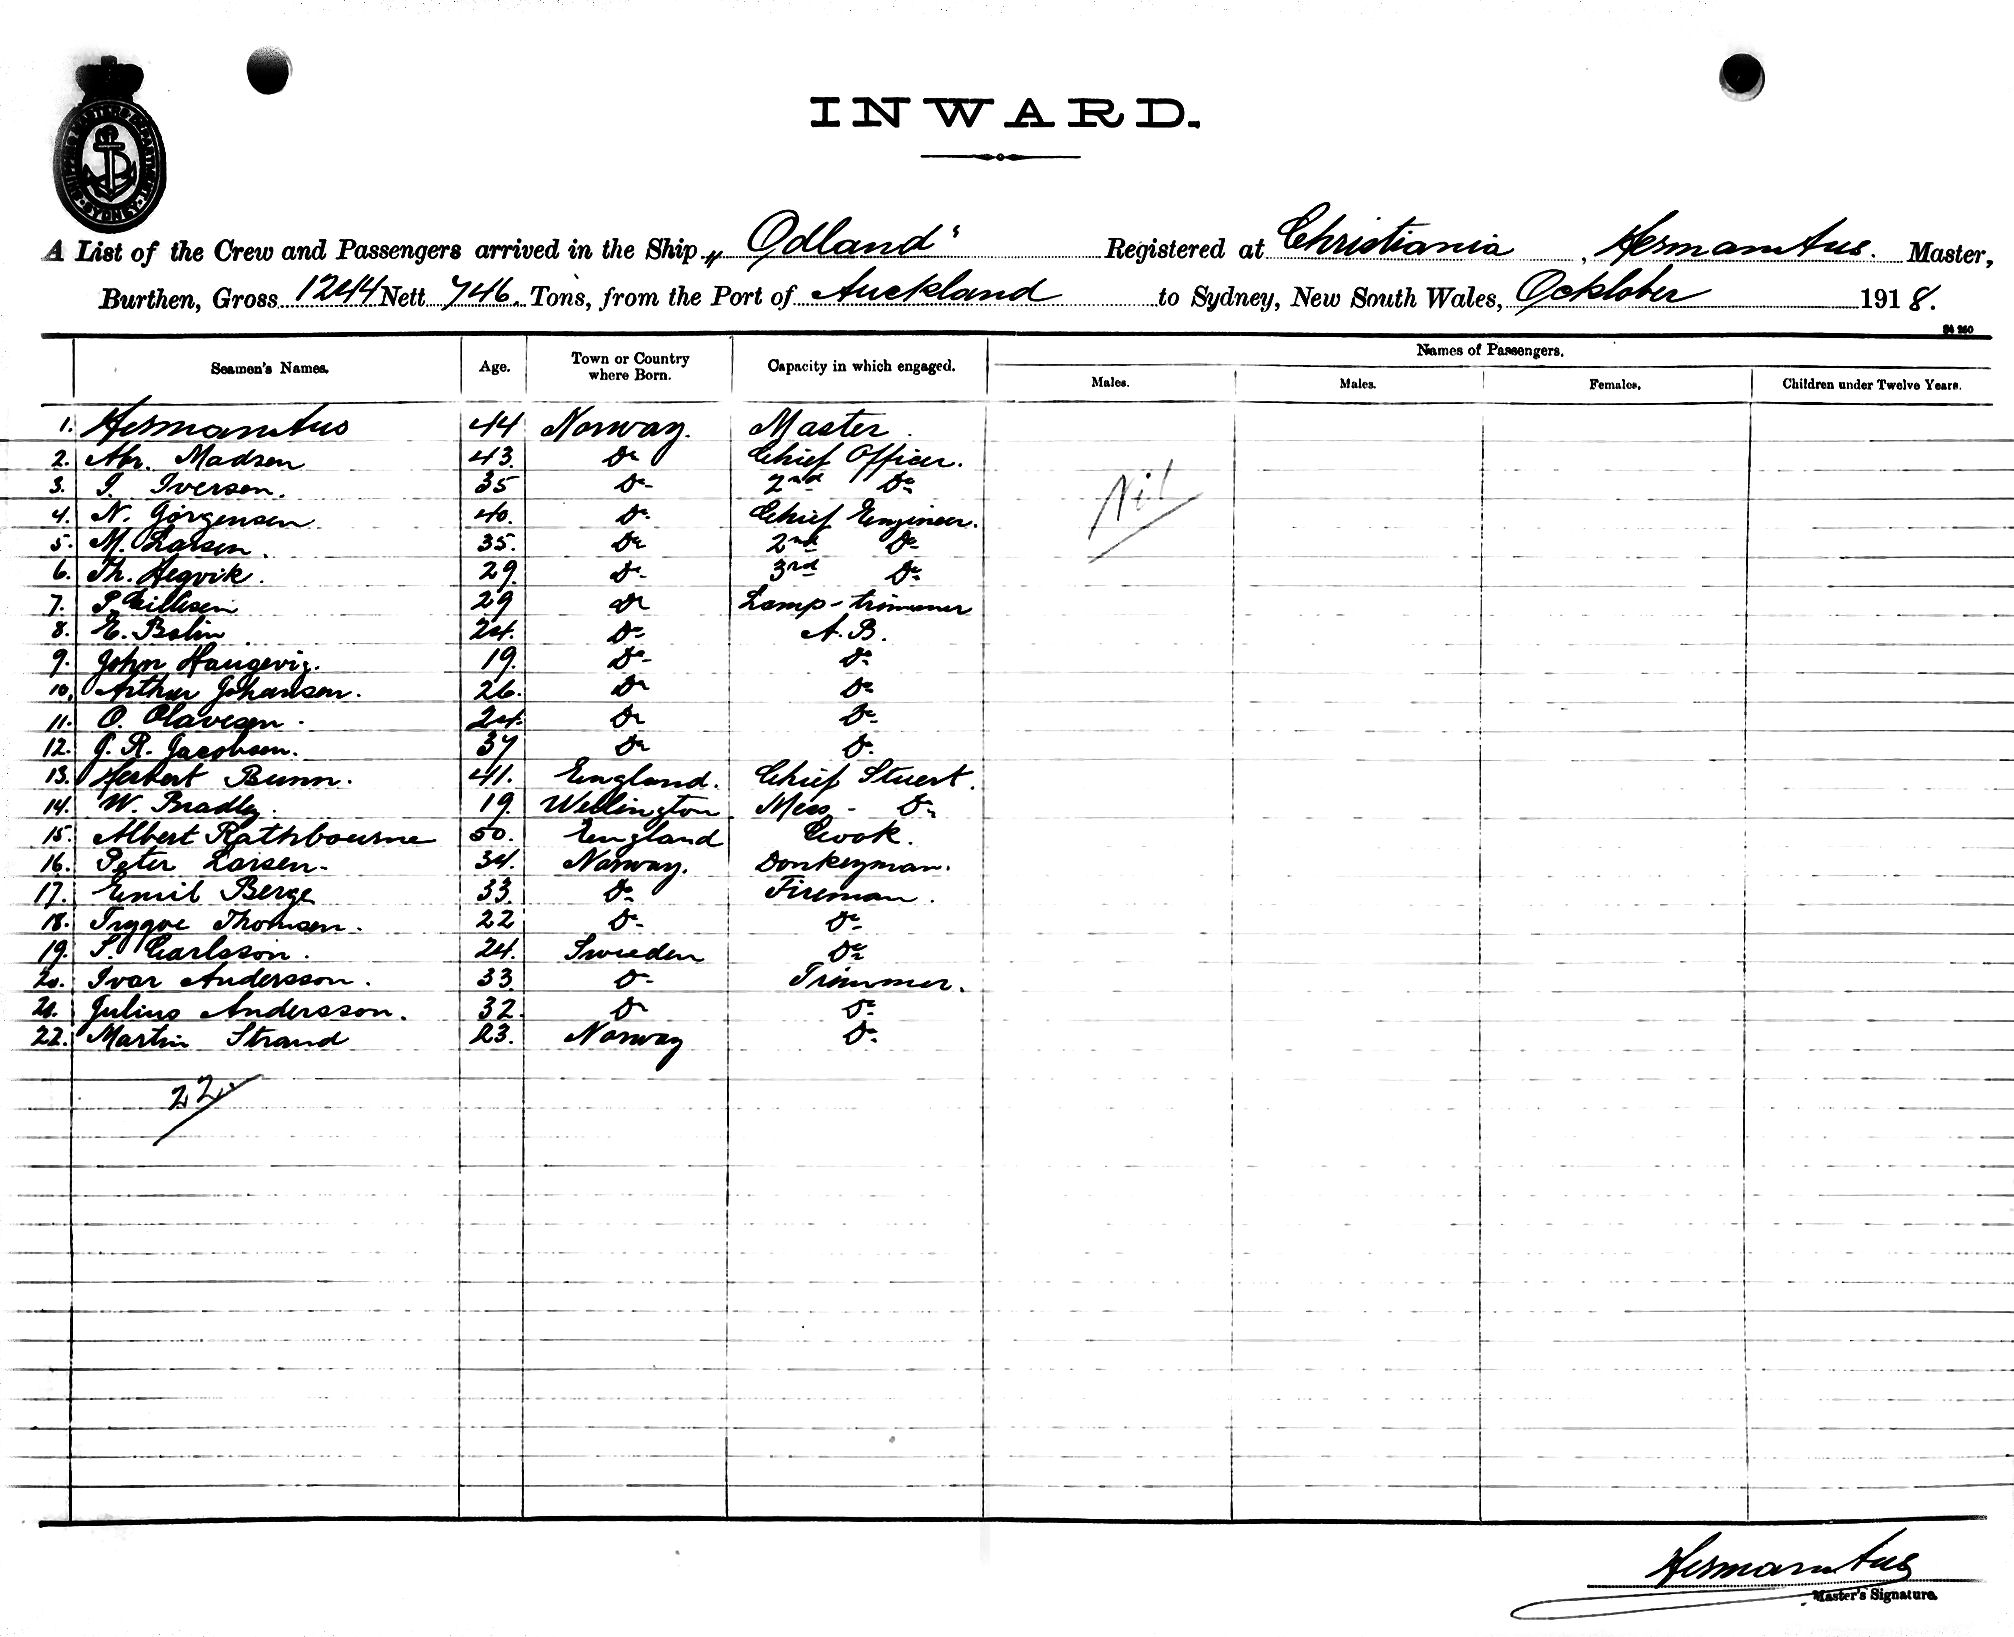 SHIPPING MASTERS DEPARTMENT SYDNEY
INWARD.
A List of the Crew and Passengers arrived in the Ship „ Odland" Registered at Christiania, Herman Aus. Master,
Burthen, Gross 1244 Nett 746. Tons, from the Port of Auckland to Sydney, New South Wales, Ocktober 1918.
Seamen's Names. Age. Town or Country where Born. Capacity in which engaged. Names of Passengers.
Males. Males. Females. Children under Twelve Years.
1. Herman Aus 44 Norway. Master.
2. Abr. Madsen 43. Do Chief Officer.
3. Iversen. 35 Do 2nd Do
Nil
4. N. Jörgensen 40. Do Chief Engineer.
5. M. Larsen. 35. Do 2nd Do
6. Th. Hegvik. 29. Do 3rd Do
7. 29 Do Lamp-trimmer
8. E. Bolin 24. Do A.B.
9. John Haugevig. 19. Do Do
10. Arthur Johansen. 26. Do Do
11. O. Olavesen. 24. Do Do
12. J. R. Jacobsen. 37 Do Do
13. Herbert Bunn. 41. England. Chief Stuert.
14. W. Bradly. 19. Wellington Mess - Do
15. Albert Rathbourne 50. England Cook.
16. Peter Larsen- 34. Norway. Donkeyman.
17. Emil Berge 33. Do Fireman.
18. Trygve Thomsen. 22 Do Do
19. S. Carlsson. 24. Sweeden Do
20. Ivar Andersson. 33. Do Trimmer.
21. Julius Andersson. 32. Do Do
22. Martin Strand 23. Norway Do
22
Herman Aus
Master's Signature.